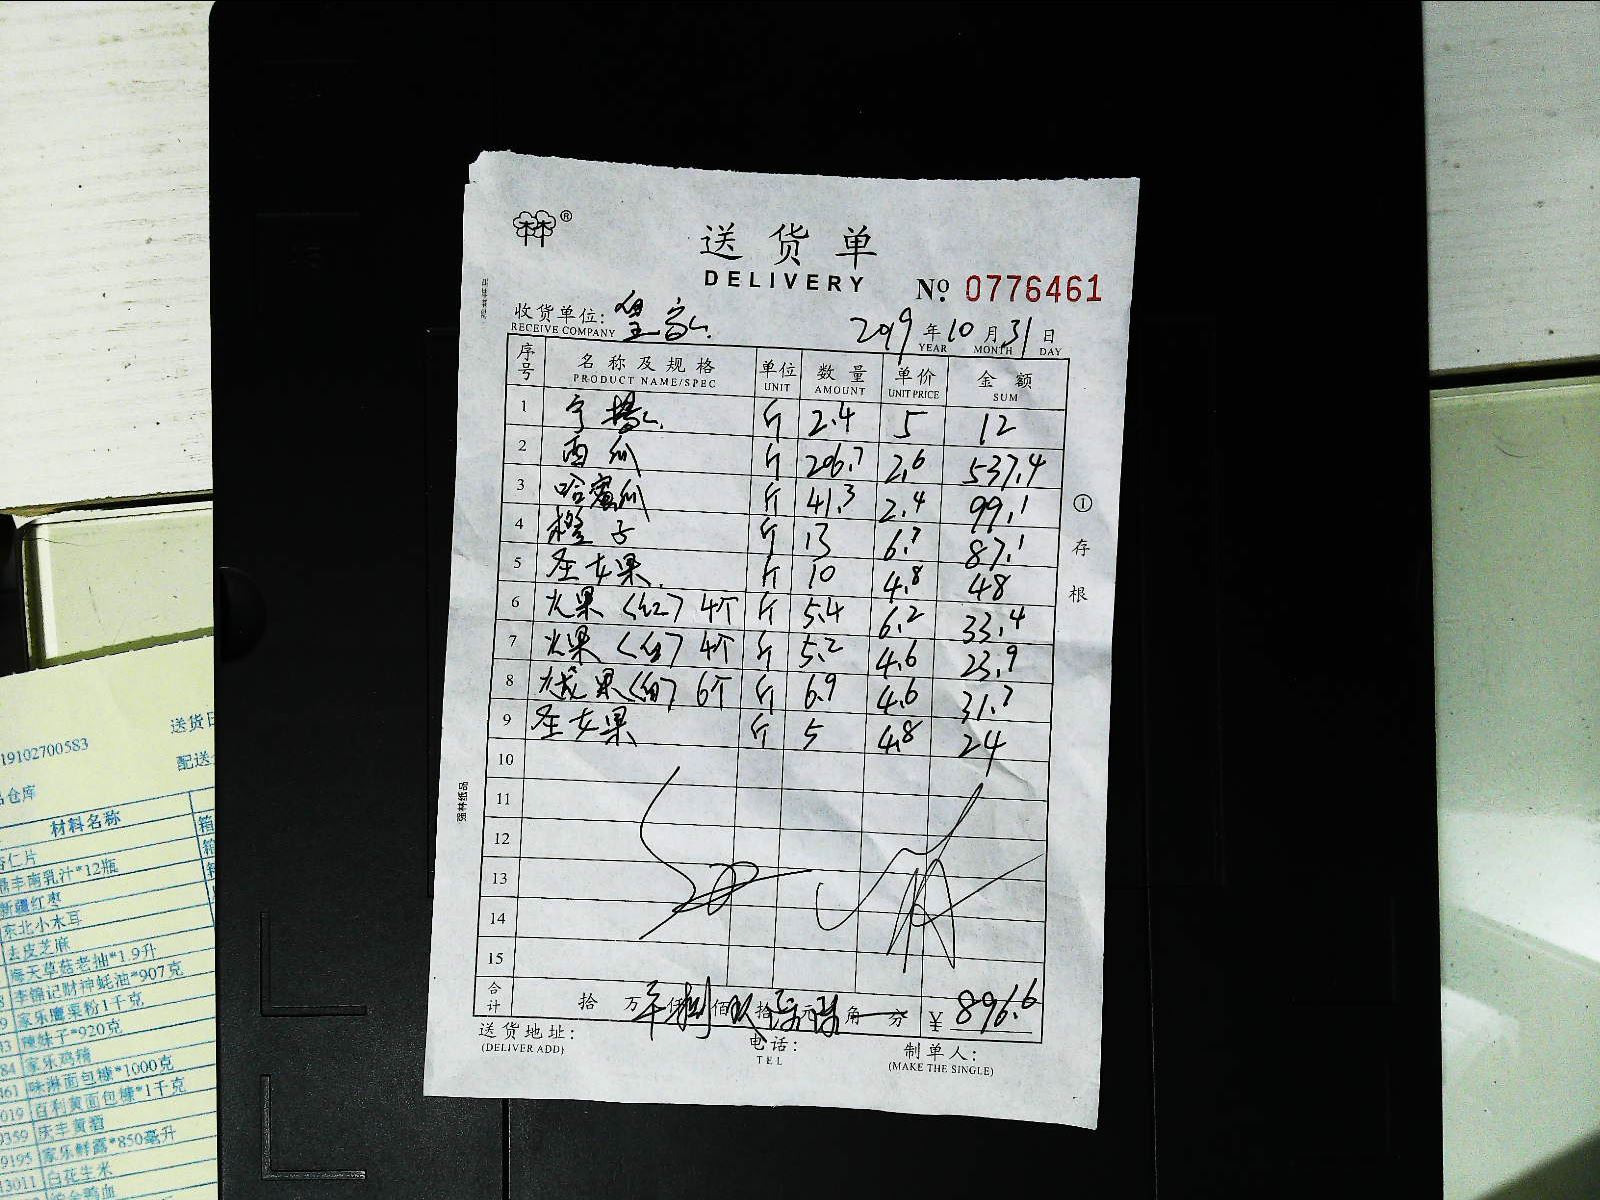 送货单
DELIVERY
No. 0776461
收货单位:
RECEIVE COMPANY
2019 年 10 月 31 日
YEAR MONTH DAY
序号 名称及规格 单位 数量 单价 金额
PRODUCT NAME/SPEC UNIT AMOUNT UNIT PRICE SUM
1 斤 2.4 5 12
2 西瓜 斤 206.7 2.6 537.4
3 哈蜜瓜 斤 41.3 2.4 99.1
4 橙子 斤 13 6.7 87.1
5 圣女果 斤 10 4.8 48
6 火果(红)4个 斤 5.4 6.2 33.4
7 火果(白)4个 斤 5.2 4.6 23.9
8 火龙果(白)6个 斤 6.9 4.6 31.7
9 圣女果 斤 5 4.8 24
10
11
12
13
14
15
合计 拾 万 仟 佰 拾 元 角 分 ¥ 896.6
送货地址:
(DELIVER ADD)
电话:
TEL
制单人:
(MAKE THE SINGLE)
①存根
送货日
19102700583
配送
仓库
材料名称
箱
杏仁片
箱
南乳汁*12瓶
新疆红枣
东北小木耳
去皮芝麻
海天草菇老抽*1.9升
李锦记财神蚝油*907克
家乐鹰粟粉1千克
辣妹子*920克
家乐鸡精
味淋面包糠*1000克
百利黄面包糠*1千克
庆丰黄酒
家乐鲜露*850毫升
白花生米